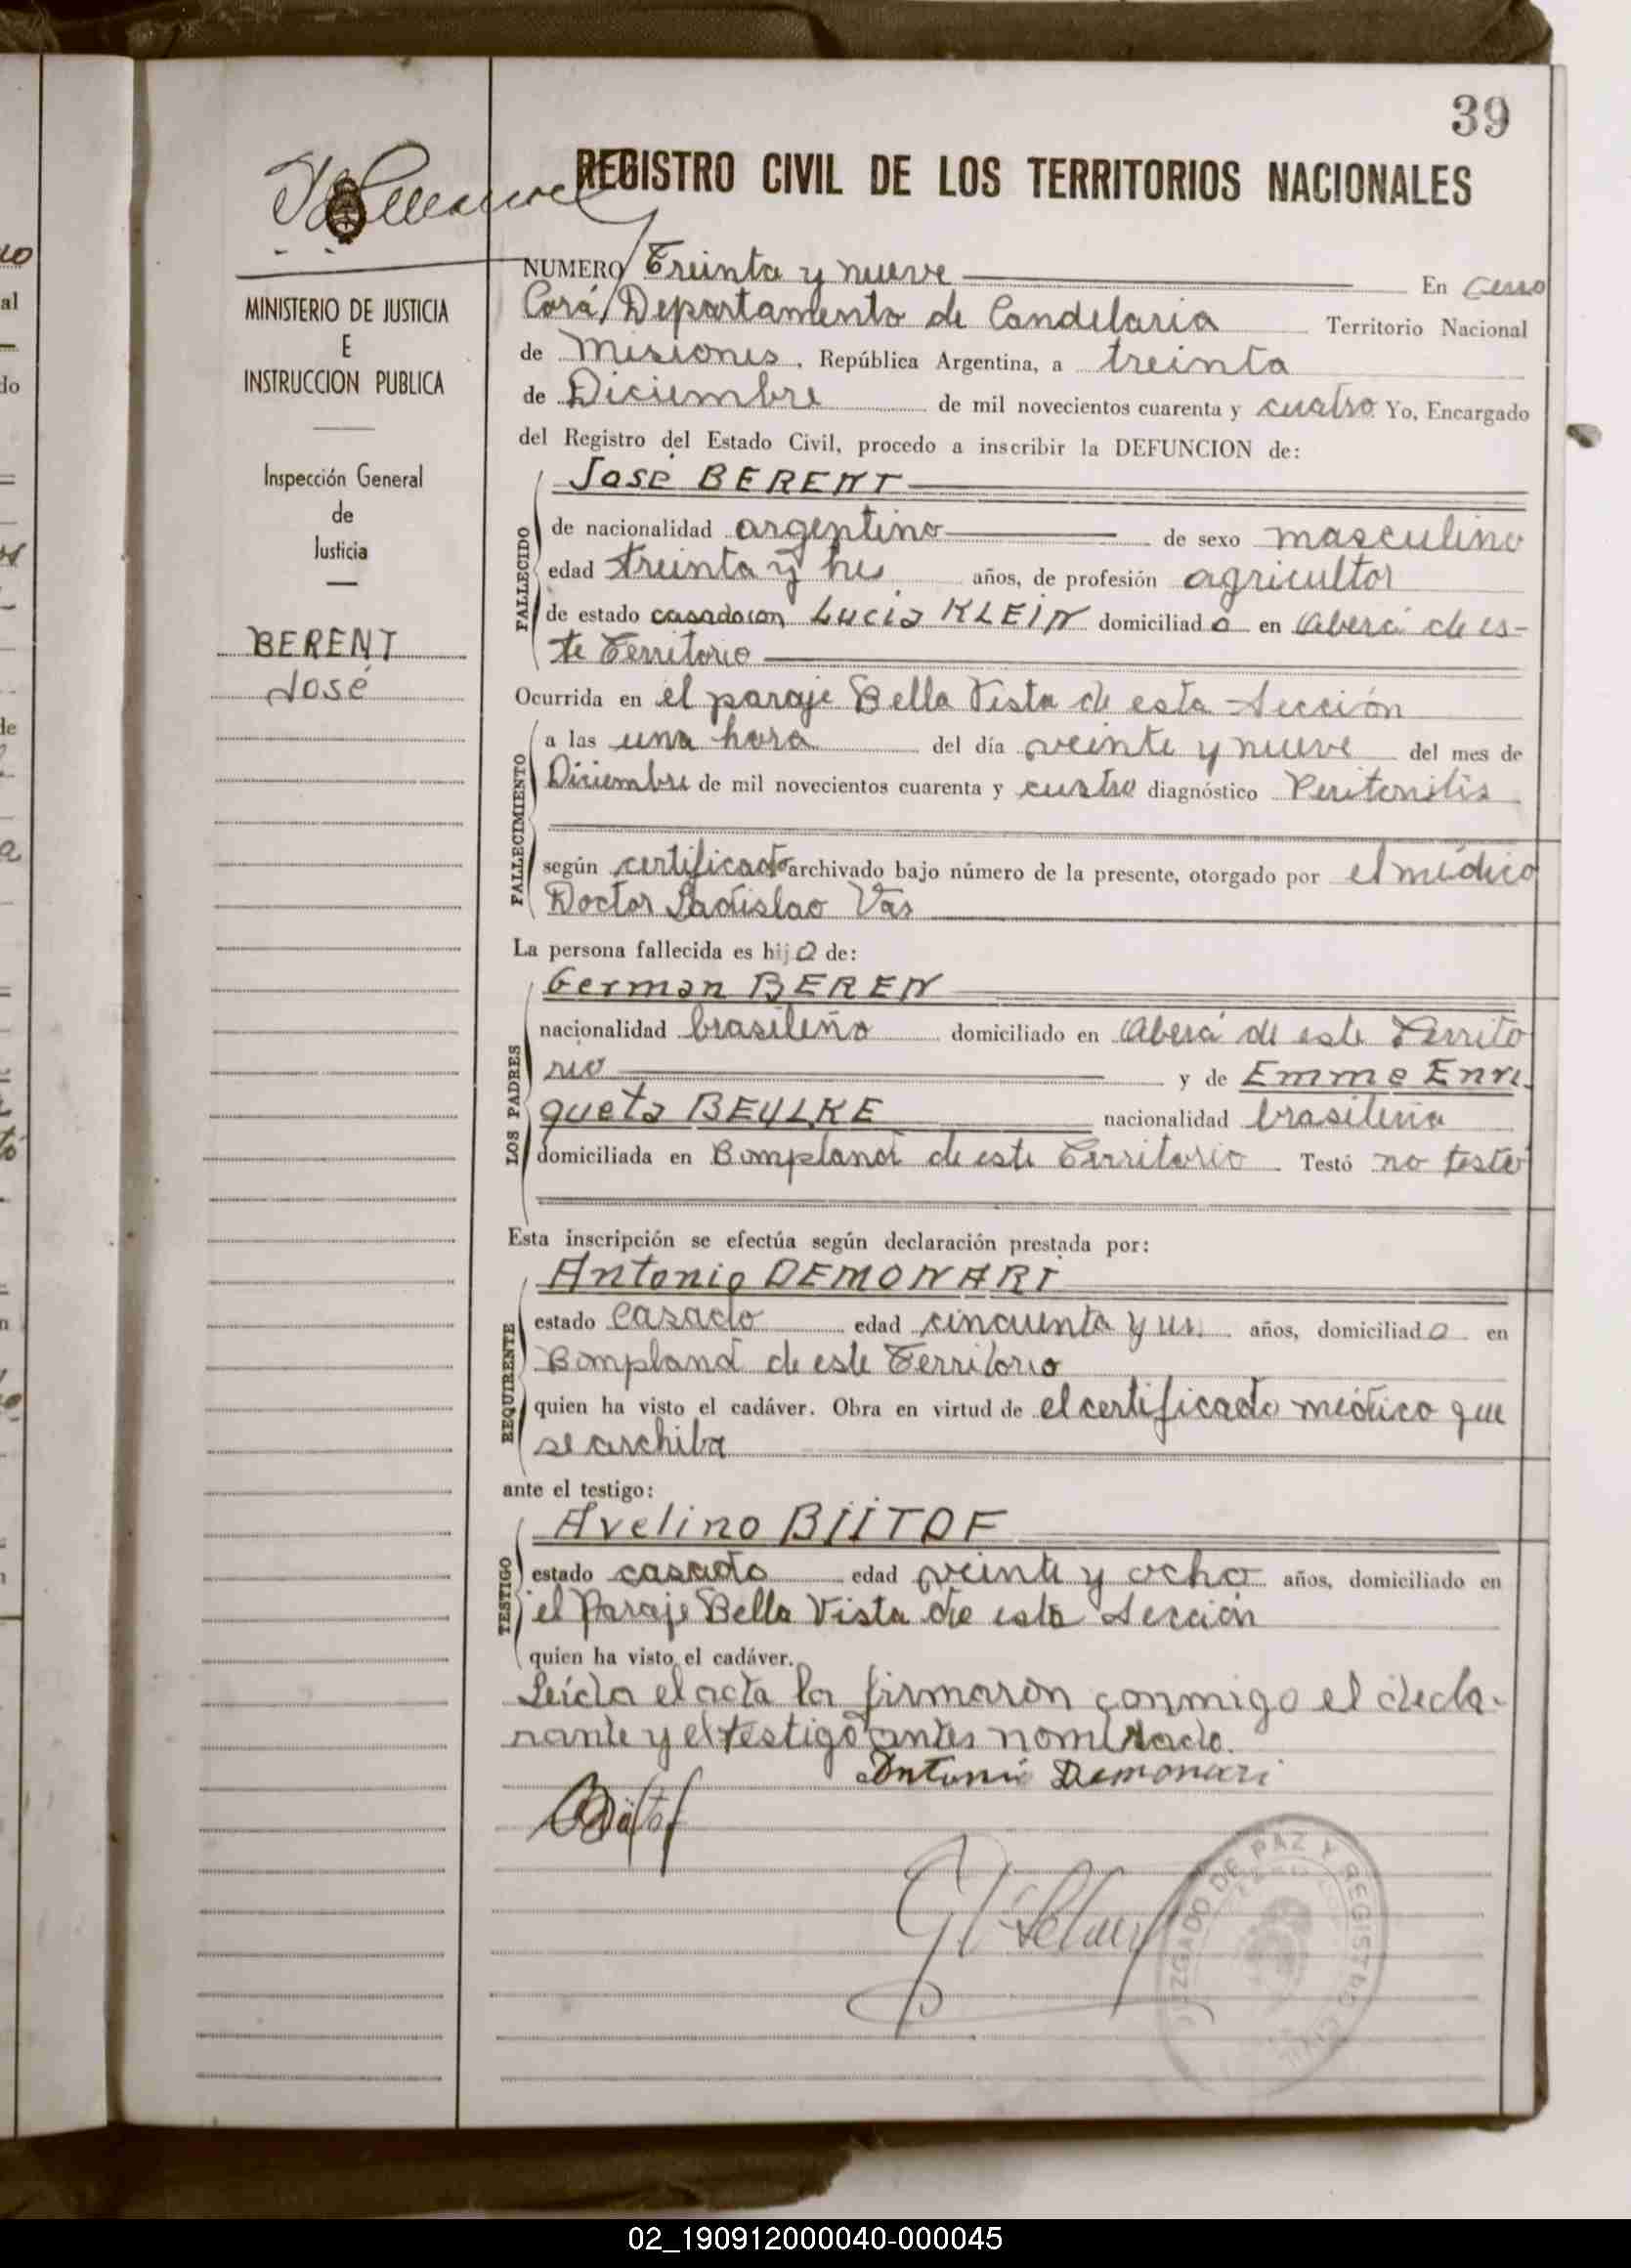 39
REGISTRO CIVIL DE LOS TERRITORIOS NACIONALES
MINISTERIO DE JUSTICIA
E
INSTRUCCION PUBLICA
Inspección General
de
Justicia
BERENT
José
NUMERO Treinta y nueve En Cerro
Corá, Departamento de Candelaria Territorio Nacional
de Misiones, República Argentina, a treinta
de Diciembre de mil novecientos cuarenta y cuatro Yo, Encargado
del Registro del Estado Civil, procedo a inscribir la DEFUNCION de:
José BERENT
FALLECIDO
de nacionalidad argentino de sexo masculino
edad treinta y tres años, de profesión agricultor
de estado casado con Lucia KLEIN domiciliado en Aberá de es-
te Territorio
Ocurrida en el paraje Bella Vista de esta Sección
FALLECIMIENTO
a las una hora del día veinte y nueve del mes de
Diciembre de mil novecientos cuarenta y cuatro diagnóstico Peritonitis
según certificado archivado bajo número de la presente, otorgado por el médico
Doctor Ladislao Vas
La persona fallecida es hijo de:
LOS PADRES
German BEREN
nacionalidad brasileño domiciliado en Aberá de este Territo
rio y de Emma Enri-
queta BEULKE nacionalidad brasileña
domiciliada en Bompland de este Territorio Testó no testó
Esta inscripción se efectúa según declaración prestada por:
REQUIRENTE
Antonio DEMONARI
estado casado edad cincuenta y un años, domiciliado en
Bompland de este Territorio
quien ha visto el cadáver. Obra en virtud de el certificado médico que
se archiba
ante el testigo:
TESTIGO
Avelino BIITOF
estado casado edad veinte y ocho años, domiciliado en
el Paraje Bella Vista de esta Sección
quien ha visto el cadáver.
Leída el acta la firmaron conmigo el decla-
rante y el testigo antes nombrado.
Antonio Demonari
JUZGADO DE PAZ Y REGISTRO CIVIL
02_190912000040-000045